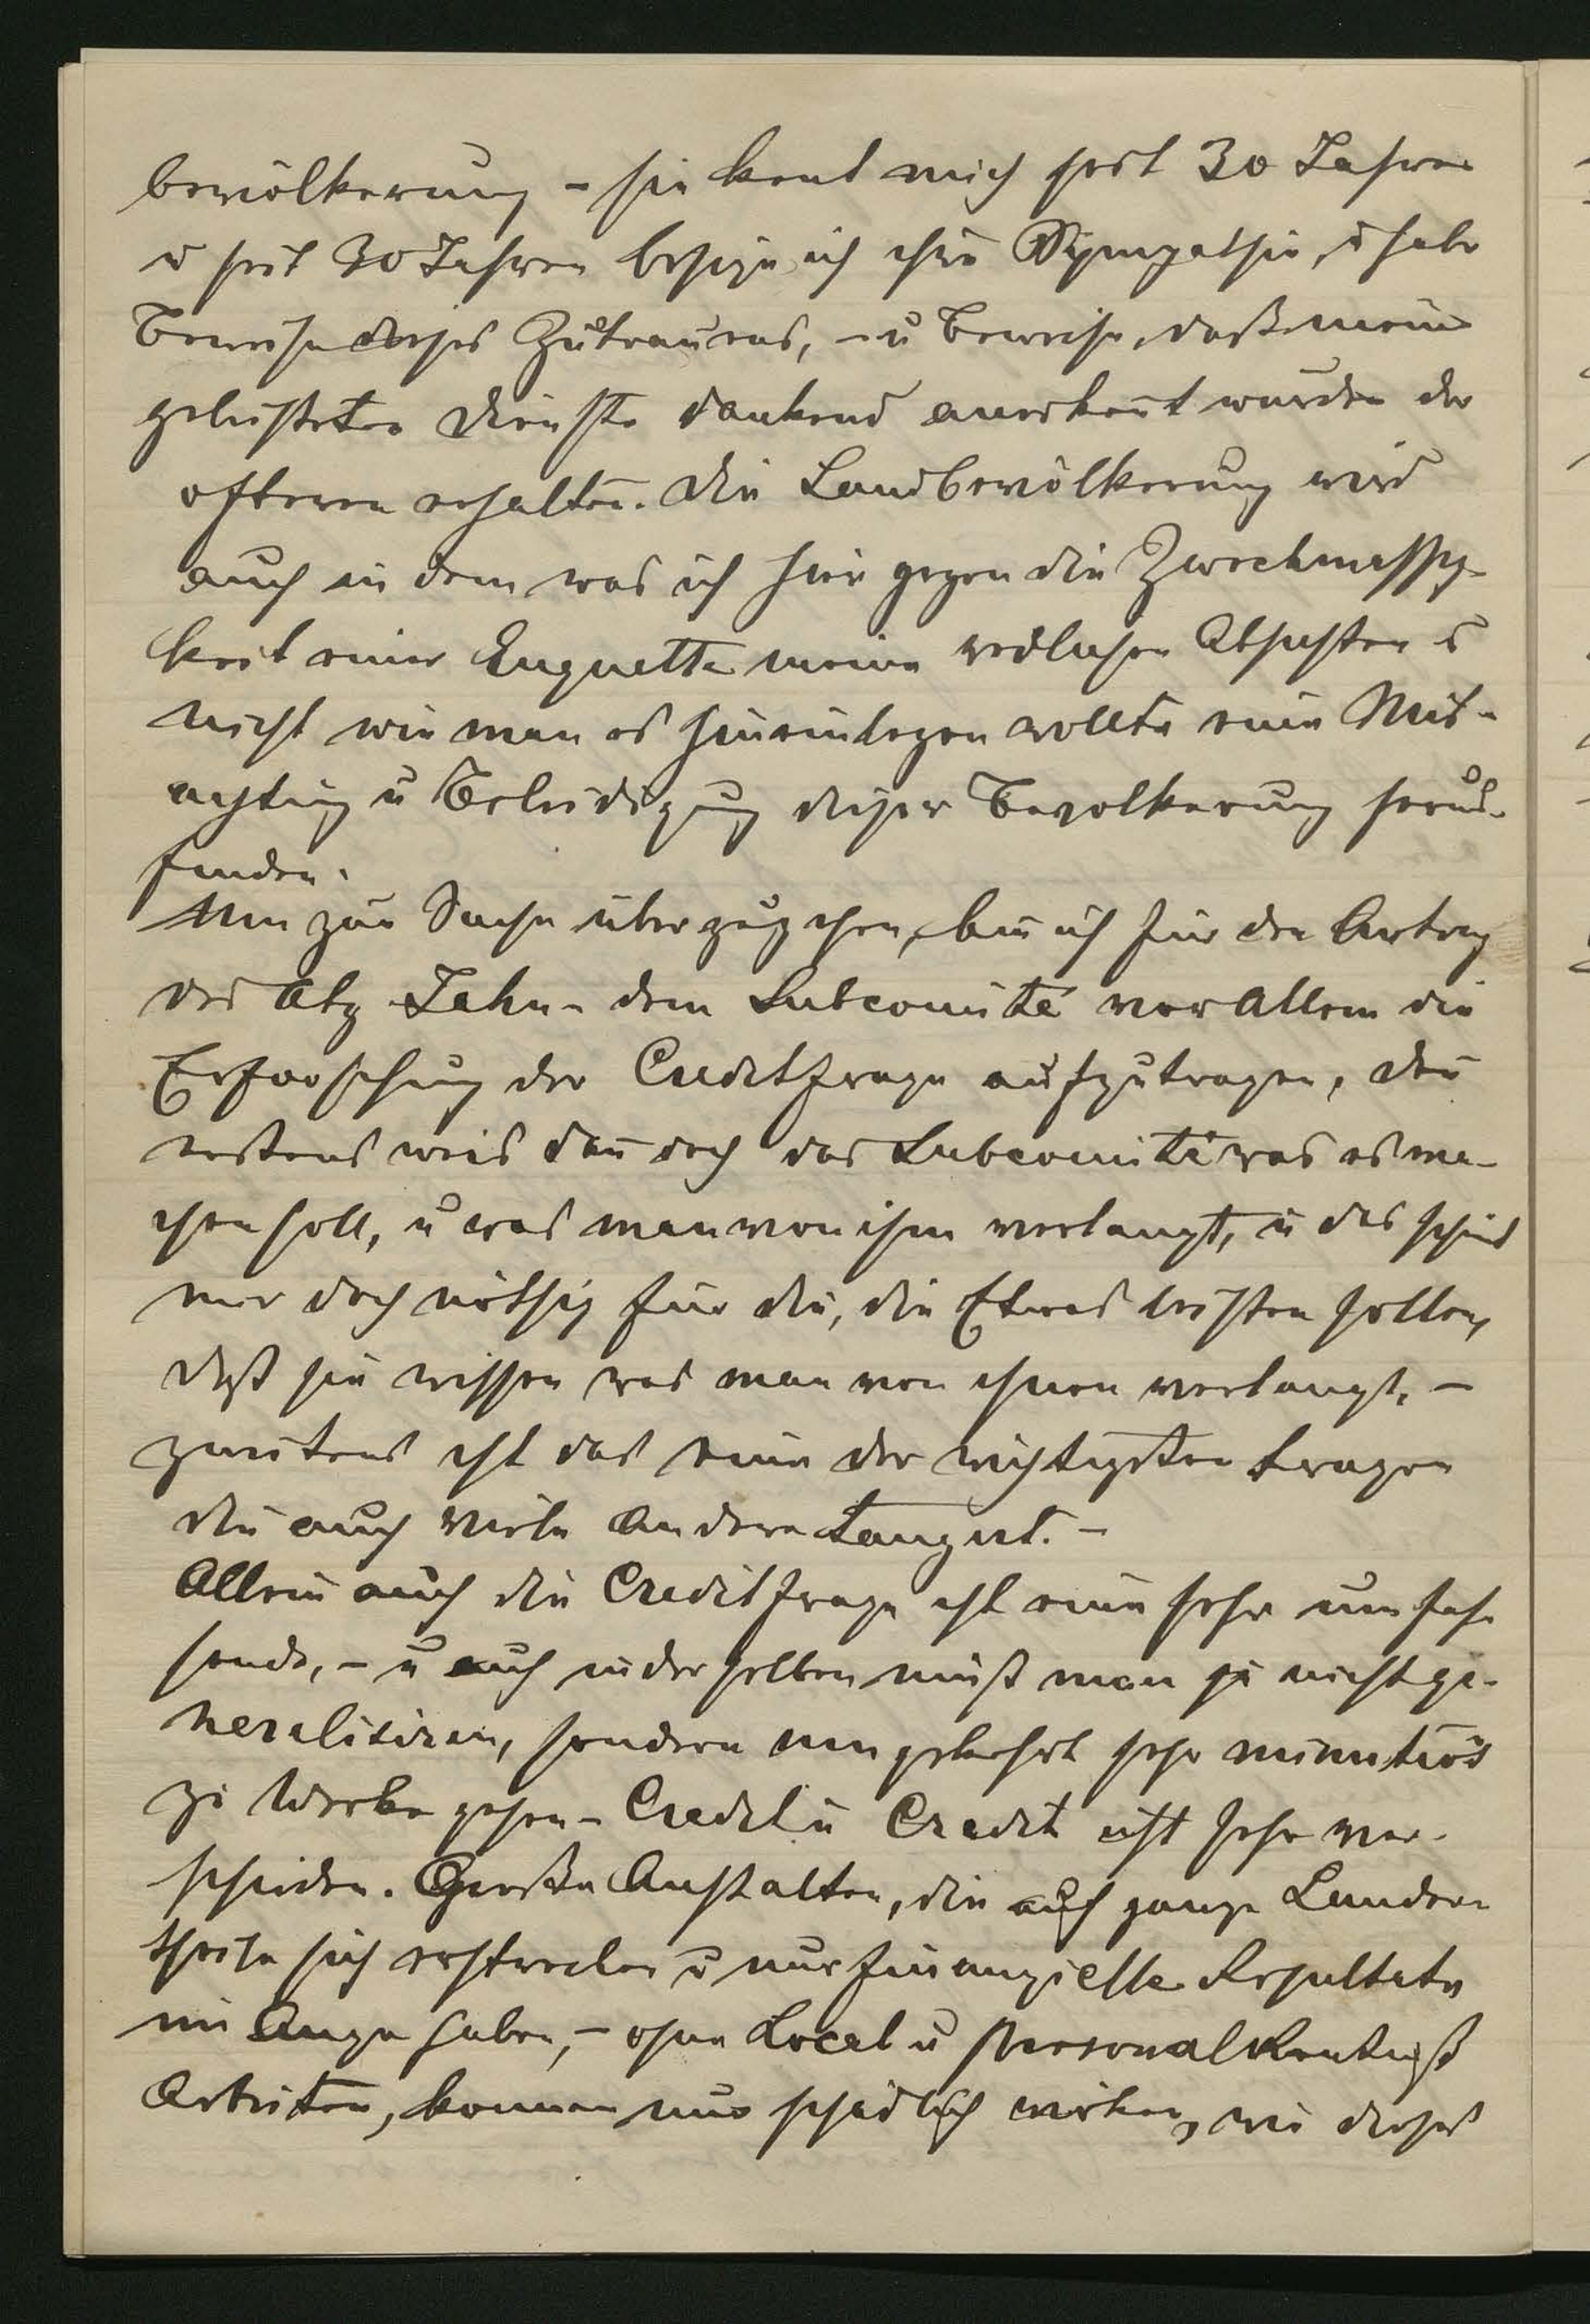 bevölkerung – sie kent mich seit 30 Jahren
u seit 30 Jahren besize ich ihre Sympathie, u habe
Beweise dieses Zutrauens, – u Beweise, daß meine
geleisteten Dienste dankend anerkent wurden des
öfteren erhalten. Die Landbevölkerung wird
auch in dem was ich hier gegen die Zweckmässig-
keit einer Enquette meine redlichen Absichten u
nicht wie man es hineinlegen wollte eine Mis-
achtung u Beleidigung dieser Bevolkerung heraus-
finden.
Nun zur Sache überzugehen, bin ich für den Antrag
des Abg Jahn – dem Subcomité vor Allem die
Erforschung der Creditfrage aufzutragen, den
erstens weis dan doch das Subcomité was es ma-
chen soll, u was man von ihm verlangt, u das scheint
mir doch nöthig für die, die Etwas leisten sollen,
daß sie wissen was man von ihnen verlangt, –
zweitens ist das eine der wichtigsten Fragen
die auch viele Andere tangirt. –
Allein auch die Creditfrage ist eine sehr umfas-
sende, – u auch in derselben muß man ja nicht ge-
neralisiren, sondern umgekehrt sehr minutiös
zu Werke gehen – Credit u Credit ist sehr ver-
schieden. Große Anstalten, die auf ganze Länder-
theile sich erstrecken u nur finanzielle Resultate
im Auge haben, – ohne Local u Personalkentniß
Arbeiten, konnen nur schädlich wirken, wie dieses